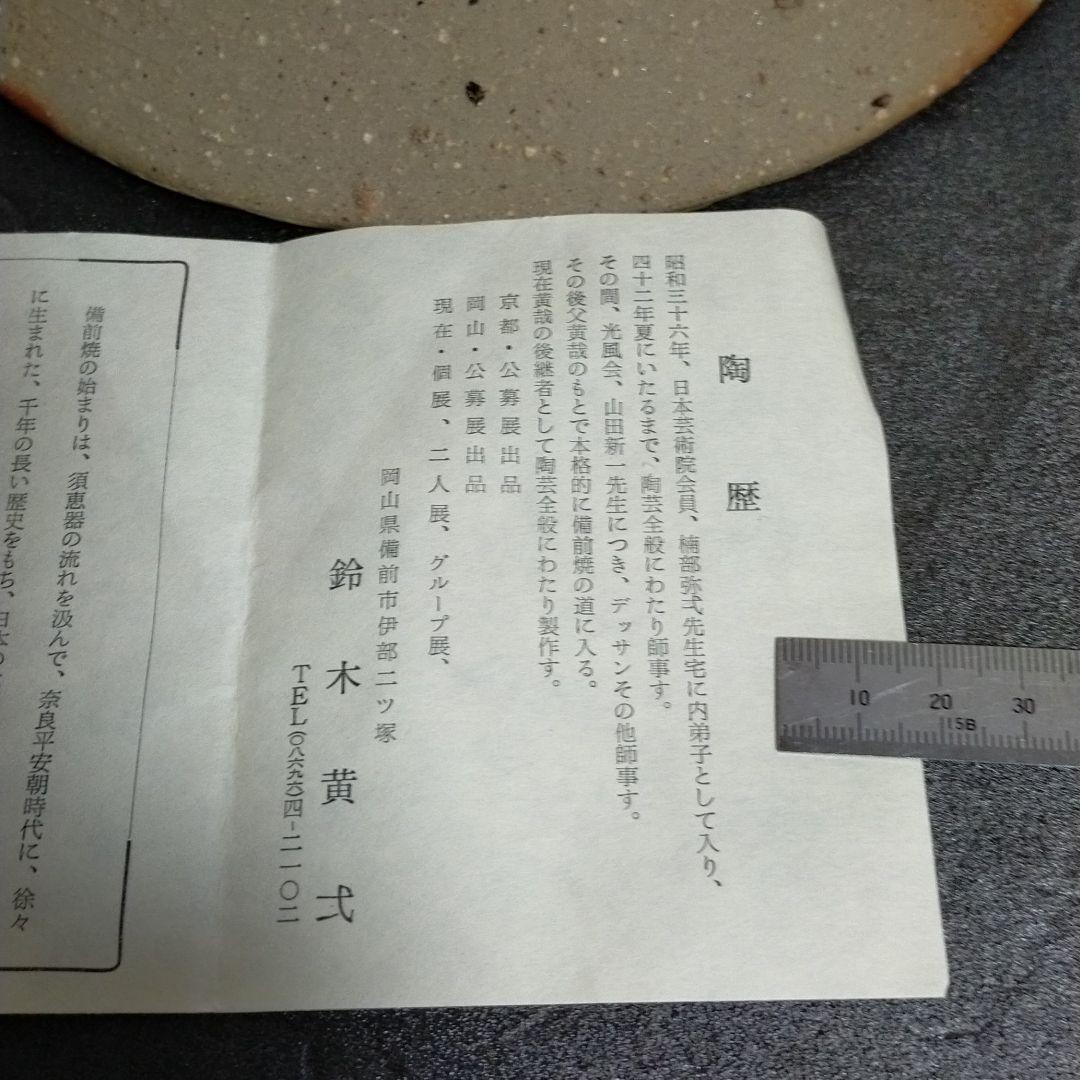 陶歴
昭和三十六年、日本芸術院会員、楠部弥弌先生宅に内弟子として入り、
四十二年夏にいたるまで、陶芸全般にわたり師事す。
その間、光風会、山田新一先生につき、デッサンその他師事す。
その後父黄哉のもとで本格的に備前焼の道に入る。
現在黄哉の後継者として陶芸全般にわたり製作す。
京都・公募展出品
岡山・公募展出品
現在・個展、二人展、グループ展、
岡山県備前市伊部二ツ塚
鈴木黄弌
TEL(〇八六九六)四-二一〇二
備前焼の始まりは、須恵器の流れを汲んで、奈良平安朝時代に、徐々
に生まれた、千年の長い歴史をもち、日本の
10 20 30
15B